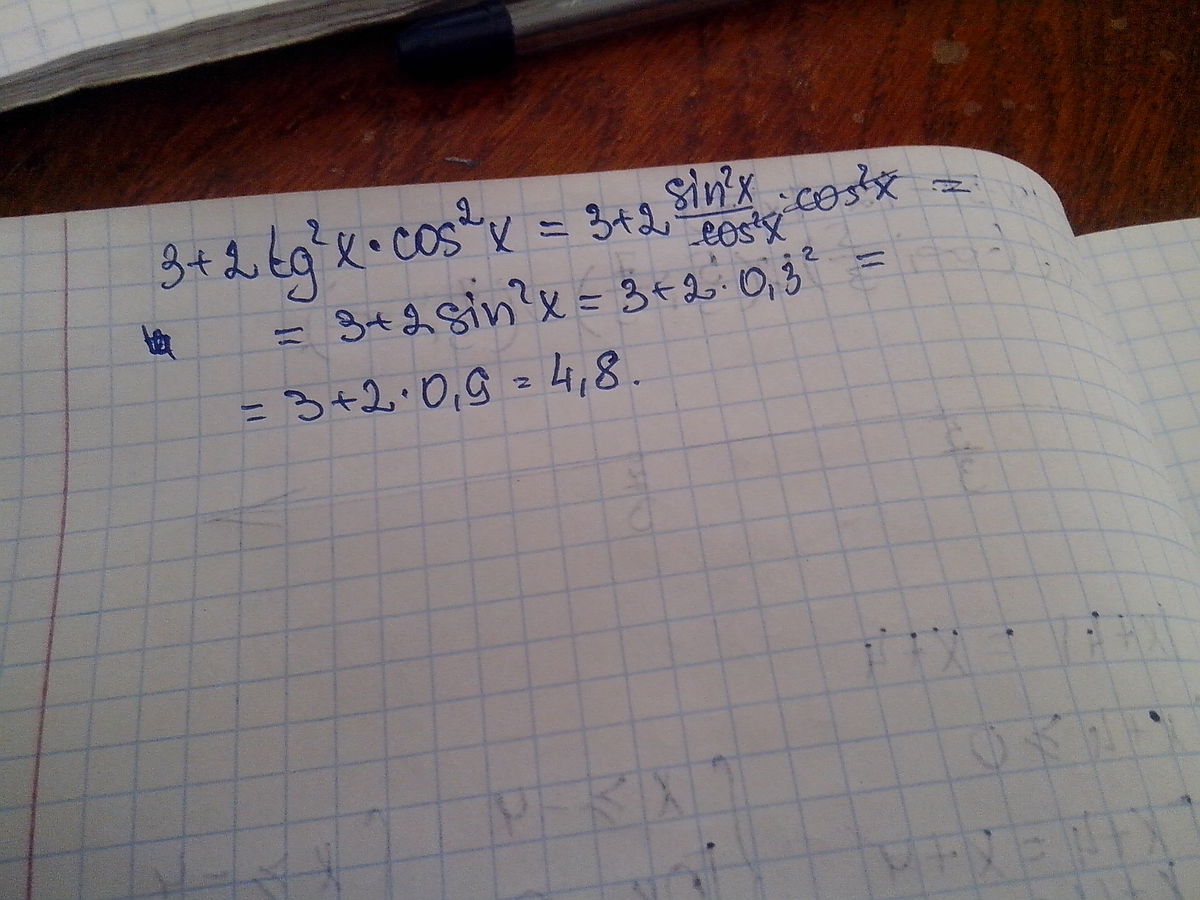 3+2tg²x·cos²x = 3+2 sin²x/cos²x · cos²x =
= 3+2sin²x = 3+2·0,3² =
= 3+2·0,9 = 4,8.